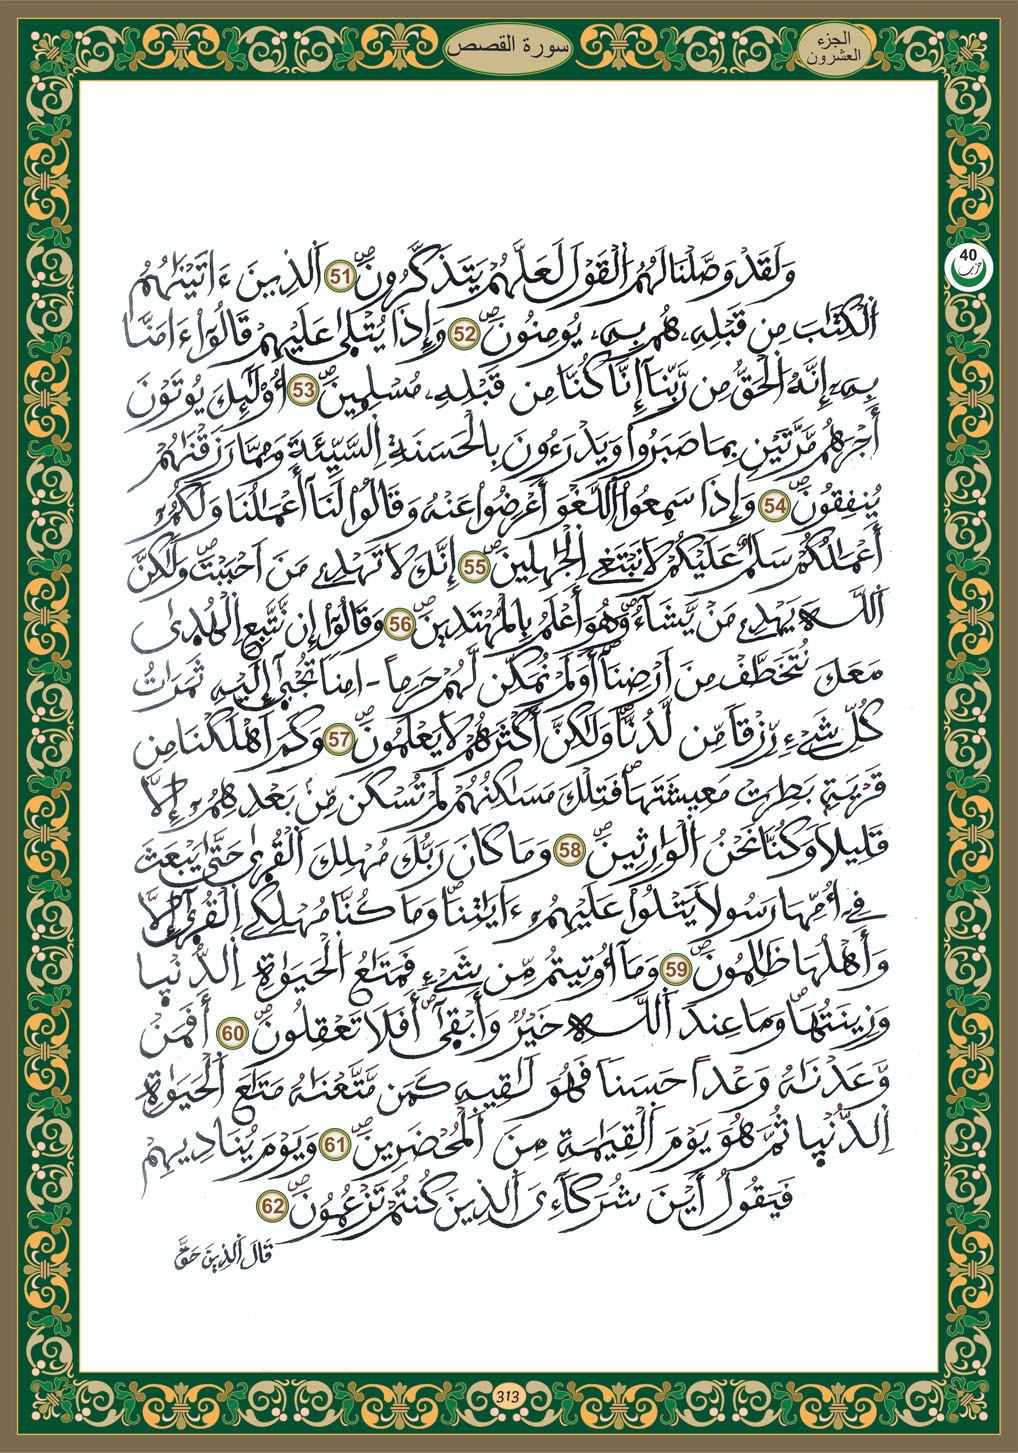 سورة القصص
الجزء
العشرون
40
حزب
وَلَقَدْ وَصَّلْنَا لَهُمُ الْقَوْلَ لَعَلَّهُمْ يَتَذَكَّرُونَۖ 51 اَلذِينَ ءَاتَيْنَٰهُمُ
اُلْكِتَٰبَ مِن قَبْلِهِۦ هُم بِهِۦ يُومِنُونَۖ 52 وَإِذَا يُتْلَىٰ عَلَيْهِمْ قَالُوٓاْ ءَامَنَّا
بِهِۦٓ إِنَّهُ اُلْحَقُّ مِن رَّبِّنَآ إِنَّا كُنَّا مِن قَبْلِهِۦ مُسْلِمِينَۖ 53 أُوْلَٰٓئِكَ يُوتَوْنَ
أَجْرَهُم مَّرَّتَيْنِ بِمَا صَبَرُواْ وَيَدْرَءُونَ بِالْحَسَنَةِ اِلسَّيِّئَةَ وَمِمَّا رَزَقْنَٰهُمْ
يُنفِقُونَۖ 54 وَإِذَا سَمِعُواْ اُللَّغْوَ أَعْرَضُواْ عَنْهُ وَقَالُواْ لَنَآ أَعْمَٰلُنَا وَلَكُمُۥٓ
أَعْمَٰلُكُمْ سَلَٰمٌ عَلَيْكُمْ لَا نَبْتَغِي اِلْجَٰهِلِينَۖ 55 إِنَّكَ لَا تَهْدِي مَنَ اَحْبَبْتَۖ وَلَٰكِنَّ
اَللَّهَ يَهْدِي مَنْ يَّشَآءُۖ وَهُوَ أَعْلَمُ بِالْمُهْتَدِينَۖ 56 وَقَالُوٓاْ إِن نَّتَّبِعِ اِلْهُدَىٰ
مَعَكَ نُتَخَطَّفْ مِنَ اَرْضِنَآۖ أَوَلَمْ نُمَكِّن لَّهُمْ حَرَماً ـ اٰمِناً تُجْبَىٰٓ إِلَيْهِ ثَمَرَٰتُ
كُلِّ شَےْءٍ رِّزْقاً مِّن لَّدُنَّاۖ وَلَٰكِنَّ أَكْثَرَهُمْ لَا يَعْلَمُونَۖ 57 وَكَمَ اَهْلَكْنَا مِن
قَرْيَةِۢ بَطِرَتْ مَعِيشَتَهَاۖ فَتِلْكَ مَسَٰكِنُهُمْ لَمْ تُسْكَن مِّنۢ بَعْدِهِمُۥٓ إِلَّا
قَلِيلاً وَكُنَّا نَحْنُ اُلْوَٰرِثِينَۖ 58 وَمَا كَانَ رَبُّكَ مُهْلِكَ اَلْقُرَىٰ حَتَّىٰ يَبْعَثَ
فِےٓ أُمِّهَا رَسُولاً يَتْلُواْ عَلَيْهِمُۥٓ ءَايَٰتِنَاۖ وَمَا كُنَّا مُهْلِكِے اِلْقُرَىٰٓ إِلَّا
وَأَهْلُهَا ظَٰلِمُونَۖ 59 وَمَآ أُوتِيتُم مِّن شَےْءٍ فَمَتَٰعُ اُلْحَيَوٰةِ اِلدُّنْيَا
وَزِينَتُهَاۖ وَمَا عِندَ اَللَّهِ خَيْرٌ وَأَبْقَىٰٓۖ أَفَلَا تَعْقِلُونَۖ 60 أَفَمَنْ
وَّعَدْنَٰهُ وَعْداً حَسَناً فَهُوَ لَٰقِيهِ كَمَن مَّتَّعْنَٰهُ مَتَٰعَ اَلْحَيَوٰةِ
اِلدُّنْيَا ثُمَّ هُوَ يَوْمَ اَلْقِيَٰمَةِ مِنَ اَلْمُحْضَرِينَۖ 61 وَيَوْمَ يُنَادِيهِمْ
فَيَقُولُ أَيْنَ شُرَكَآءِىَ اَلذِينَ كُنتُمْ تَزْعُمُونَۖ 62
قَالَ اَلذِينَ حَقَّ
313